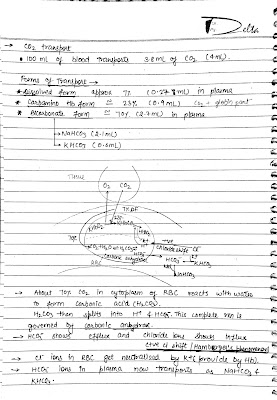 Delta
→ CO2 transport
• 100 ml of blood transports 3.8 ml of CO2 (4ml).
Forms of Transport →
* Dissolved form approx 7% (0.27 ml) in plasma
* Carbamino Hb form ≈ 23% (0.9ml) CO2 + globin part
* Bicarbonate form ≈ 70% (2.7ml) in plasma
→ NaHCO3 (2.1ml)
→ KHCO3 (0.6ml)
Tissue
O2 CO2
Chloride shift
Carbonic anhydrase
RBC
NaHCO3
→ About 70% CO2 in cytoplasm of RBC reacts with water
to form carbonic acid (H2CO3).
H2CO3 then splits into H+ & HCO3-. This complete rxn is
governed by carbonic anhydrase.
→ HCO3- shows efflux and chloride ions shows influx
shift (Hamburger's phenomenon)
→ Cl- ions in RBC get neutralised by K+ (provide by Hb).
→ HCO3- ions in plasma now transports as NaHCO3 &
KHCO3.